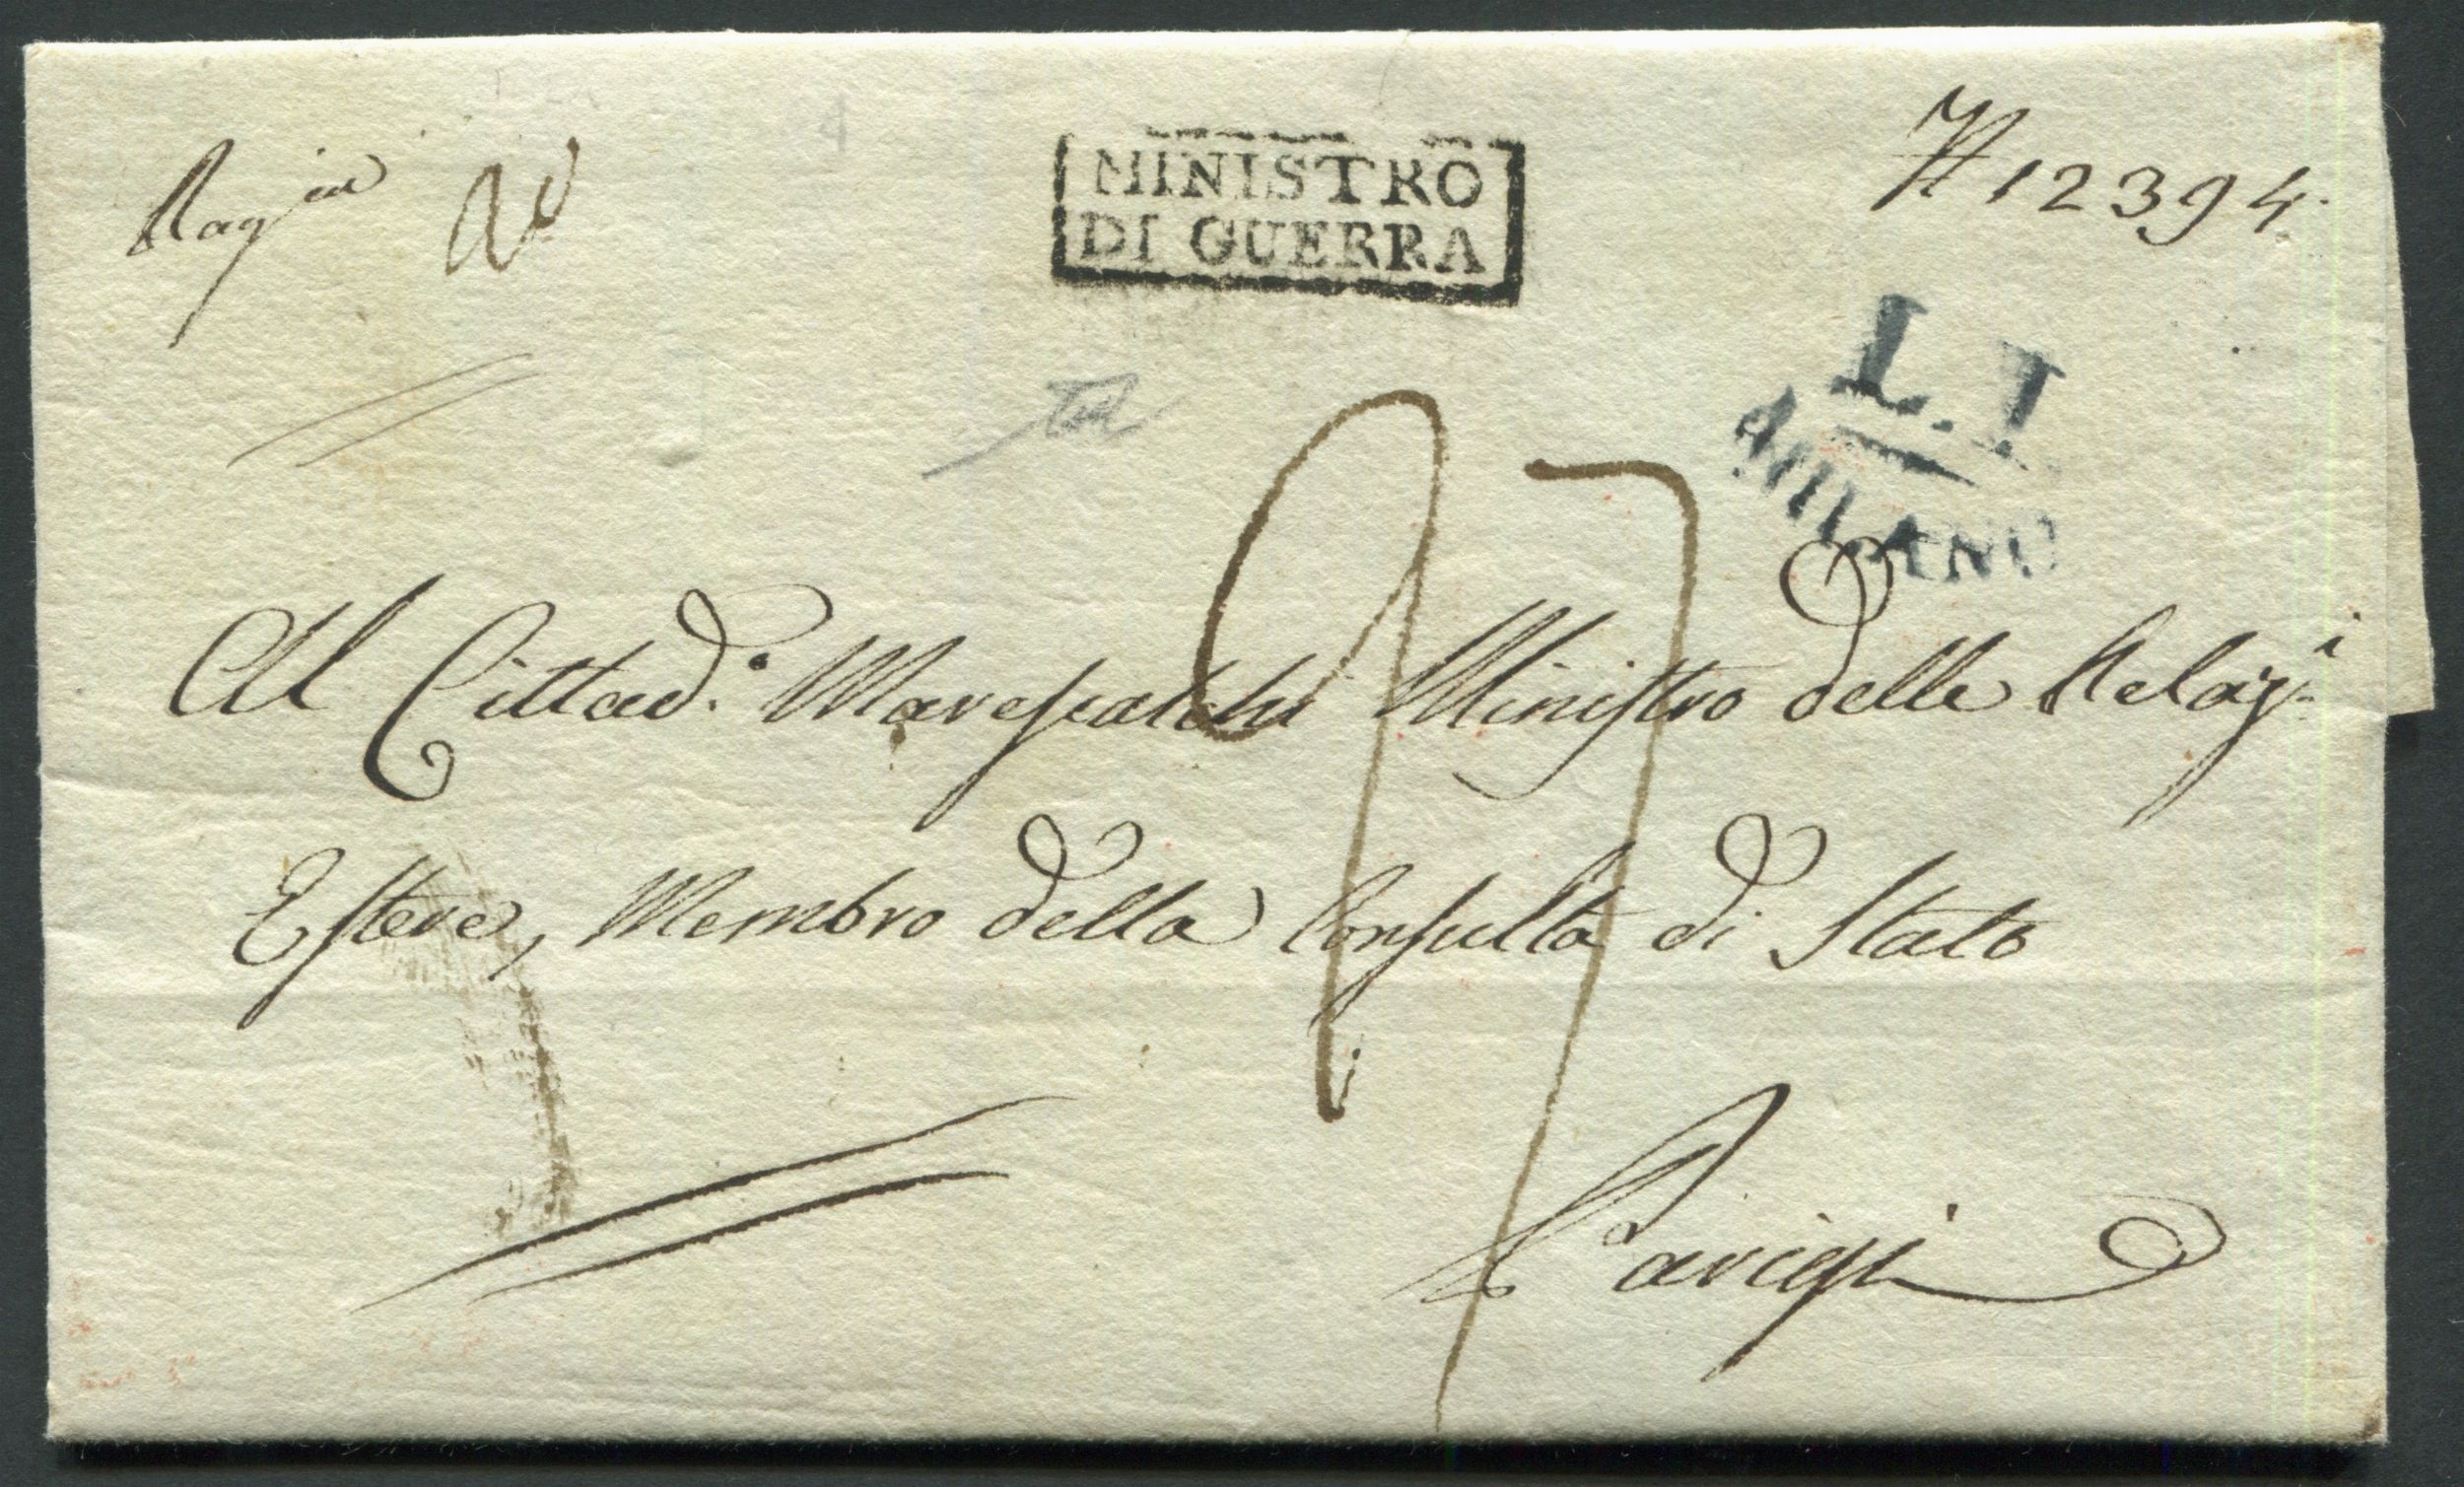 Rag.ia
MINISTRO
DI GUERRA
N 12394.
L.I
MILANO
27
Al Cittad.o Marescalchi Ministro delle Relaz.i
Estere, Membro della Consulta di Stato
Parigi